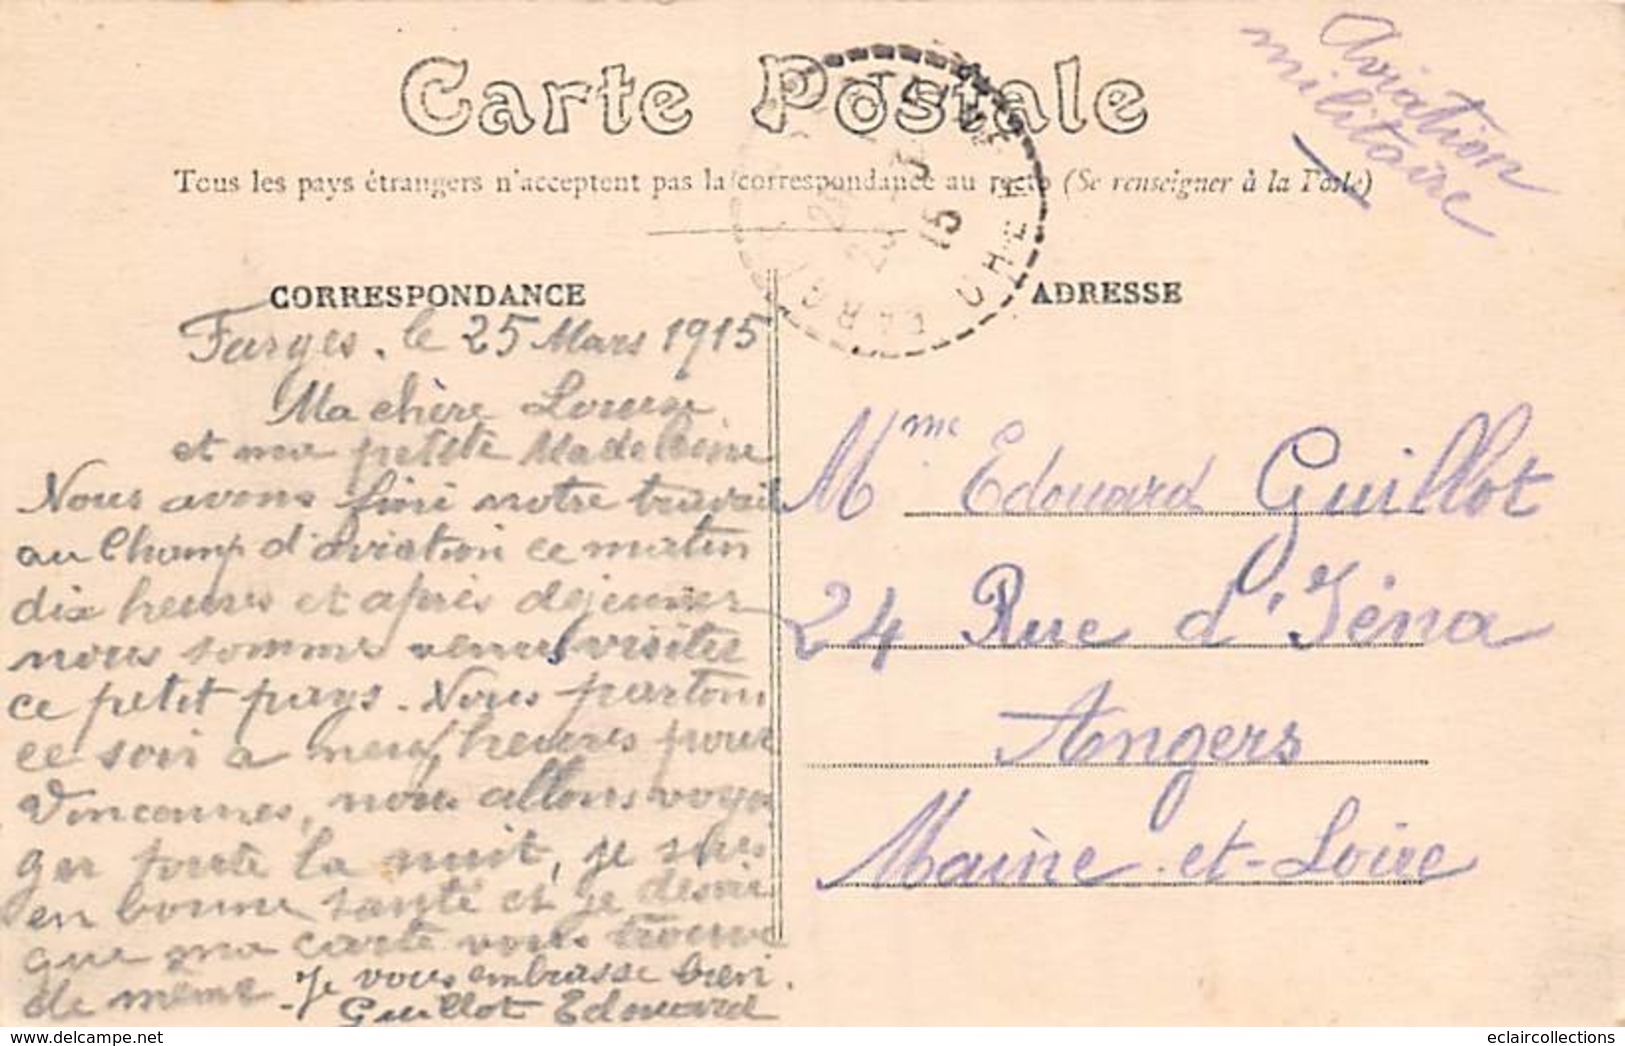 Carte Postale
Aviation
militaire
Tous les pays étrangers n'acceptent pas la correspondance au recto (Se renseigner à la Poste)
15
CHER
CORRESPONDANCE
Farges. le 25 Mars 1915
Ma chère Louise
et ma petite Madeleine
Nous avons fini notre travail
au Champ d'aviation ce matin
dix heures et après déjeuner
nous somme venus visiter
ce petit pays. Nous partons
ce soir a neuf heures pour
Vincennes, nous allons voya
ger toute la nuit, je suis
en bonne santé et je desire
que ma carte vous trouve
de même. Je vous embrasse bien.
Guillot Edouard
ADRESSE
Mme Edouard Guillot
24 Rue d'Iéna
Angers
Maine-et-Loire
www.delcampe.net
eclaircollections